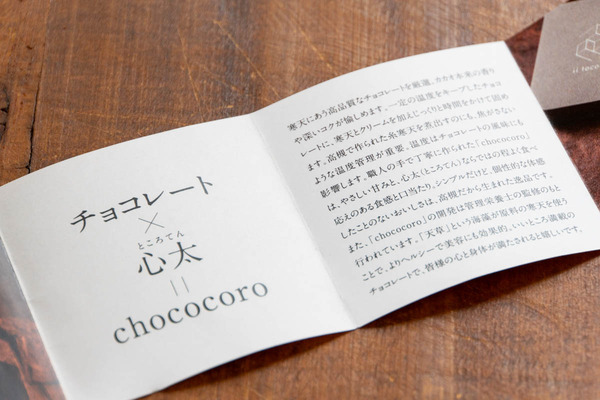 チョコレート
×
ところてん
心太
＝
chococoro
寒天にあう高品質なチョコレートを厳選。カカオ本来の香り
や深いコクが愉しめます。一定の温度をキープしたチョコ
レートに、寒天とクリームを加えじっくりと時間をかけて固め
ます。高機で作られた糸寒天を煮出すのにも、焦がさない
ような温度管理が重要。温度はチョコレートの風味にも
影響します。職人の手で丁寧に作られた「chococoro」
は、やさしい甘みと、心太（ところてん）ならではの程よく食べ
応えのある食感と口当たり。シンプルだけど、個性的な体感
したことのないおいしさは、高機だから生まれた逸品です。
また、「chococoro」の開発は管理栄養士の監修のもと
行われています。「天草」という海藻が原料の寒天を使う
ことで、よりヘルシーで美容にも効果的。いいところ満載の
チョコレートで、皆様の心と身体が満たされると嬉しいです。